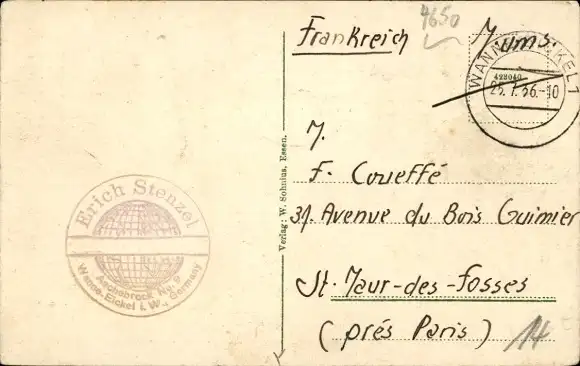 4650
Frankreich
WANNE-EICKEL 1
423040
25.7.36.-10
J.
F. Coueffé
34. Avenue du Bois Guimier
St. Maur-des-Fosses
(prés Paris)
14
Verlag: W. Sohnius, Essen.
Erich Stenzel
Aschebrock No. 9
Wanne-Eickel i. W., Germany